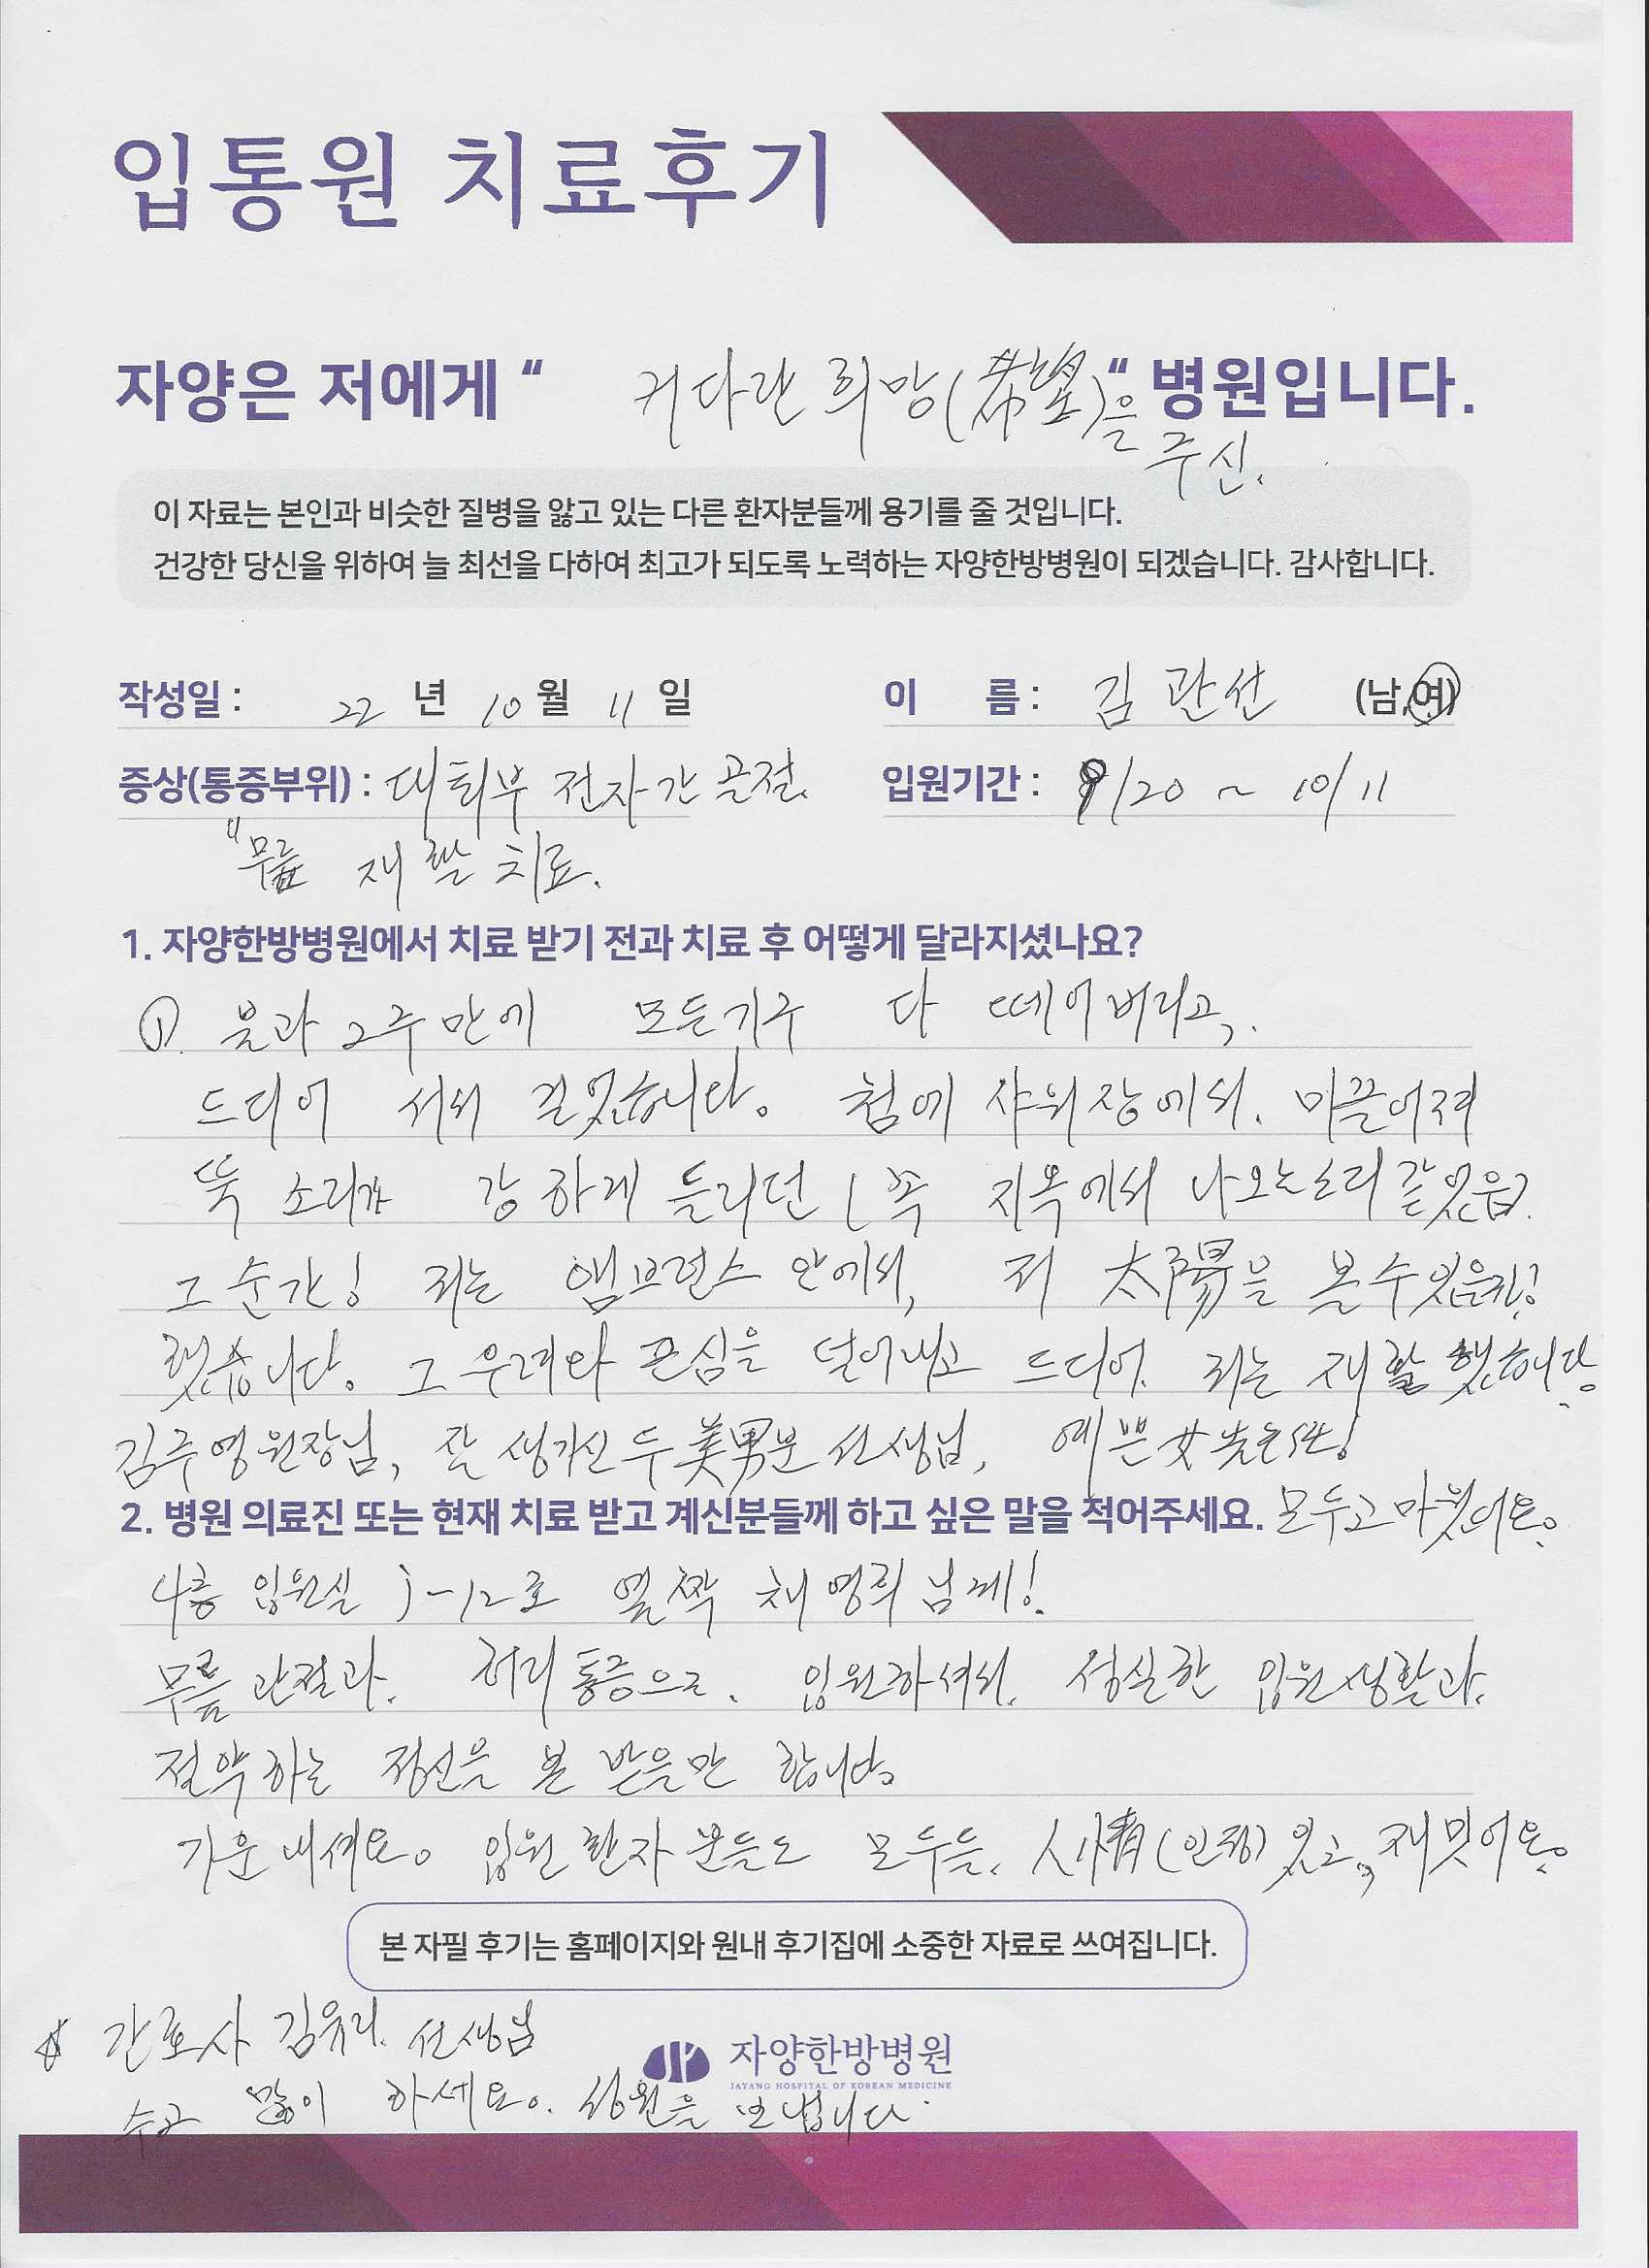 입통원 치료후기
자양은 저에게 “ 커다란 희망(希望)을 “ 병원입니다.
주신.
이 자료는 본인과 비슷한 질병을 앓고 있는 다른 환자분들께 용기를 줄 것입니다.
건강한 당신을 위하여 늘 최선을 다하여 최고가 되도록 노력하는 자양한방병원이 되겠습니다. 감사합니다.
작성일 : 22 년 10 월 11 일 이 름 : 김관선 (남,여)
증상(통증부위) : 대퇴부 전자간 골절. 입원기간 : 9/20 ~ 10/11
"무릎 재활 치료.
1. 자양한방병원에서 치료 받기 전과 치료 후 어떻게 달라지셨나요?
①. 불과 2주만에 모든기구 다 떼어버리고,.
드디어 서서 걸었습니다. 첨에 샤워장에서. 미끌어져
뚝 소리가 강하게 들리던 L쪽 지옥에서 나오는소리같었읍?
그 순간! 저는 앰브런스 안에서, 저 太陽을 볼수있을가?
했습니다. 그 우려와 근심을 덜어내고 드디어. 저는 재활했습니다.
김주영원장님, 잘 생기신 두 美男분 선생님, 예쁜 女先生!
2. 병원 의료진 또는 현재 치료 받고 계신분들께 하고 싶은 말을 적어주세요. 모두고마웠어요.
4층 입원실 -12호 옆짝 채영희님께!
무릎관절과. 허리통증으로. 입원하셔서. 성실한 입원생활과.
절약하는 정신을 본 받을만 합니다.
기운내셔요. 입원환자분들도 모두들. 人情(인정)있고, 재밋어요.
본 자필 후기는 홈페이지와 원내 후기집에 소중한 자료로 쓰여집니다.
☆ 간호사 김유리. 선생님
자양한방병원
JAYANG HOSPITAL OF KOREAN MEDICINE
수고 많이 하세요. 성원을 보냅니다.